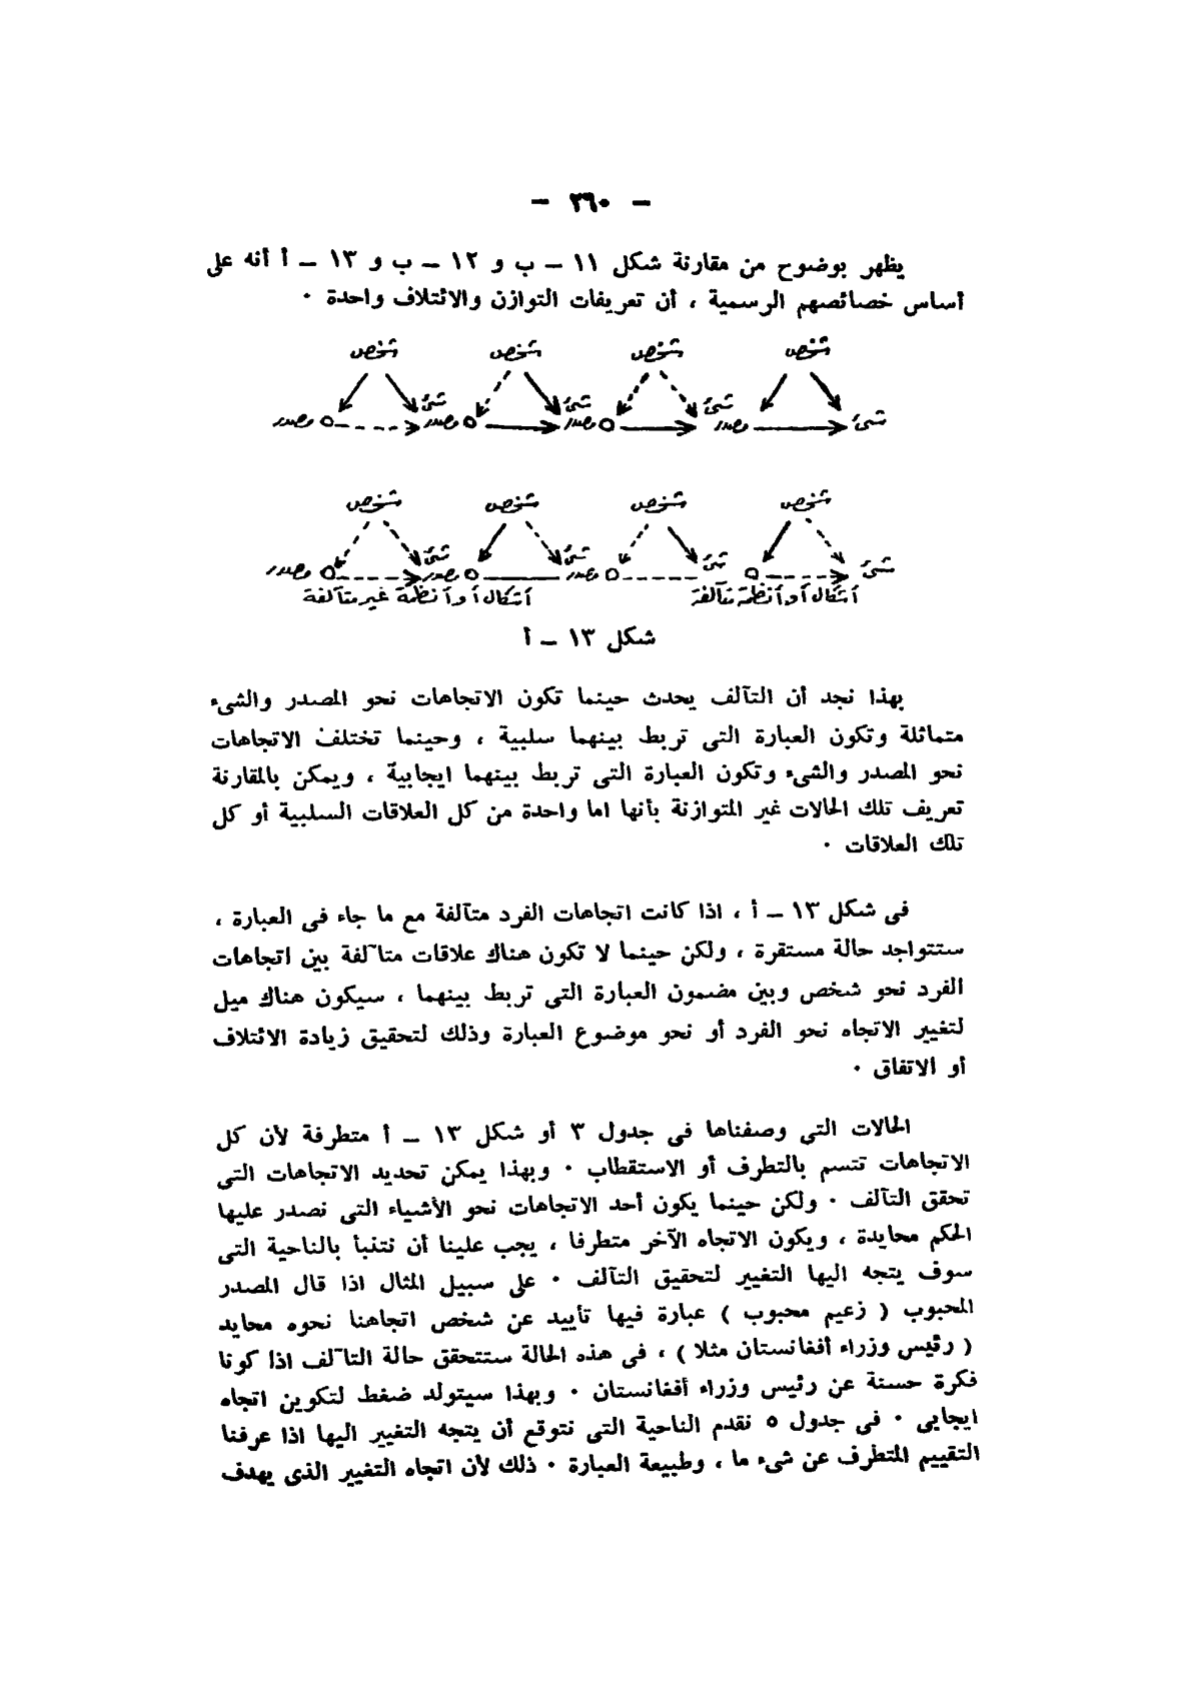 — ٣٦٠ —
يظهر بوضوح من مقارنة شكل ١١ — ب و ١٢ — ب و ١٣ — أ أنه على
أساس خصائصهم الرسمية ، أن تعريفات التوازن والائتلاف واحدة ٠
شخص شخص شخص شخص
شئ مصدر شئ مصدر شئ مصدر شئ مصدر
شخص شخص شخص شخص
شئ شئ شئ مصدر شئ مصدر مصدر
أشكال أو أنظمة متآلفة أشكال أو أنظمة غير متآلفة
شكل ١٣ — أ
بهذا نجد أن التآلف يحدث حينما تكون الاتجاهات نحو المصدر والشىء
متماثلة وتكون العبارة التى تربط بينهما سلبية ، وحينما تختلف الاتجاهات
نحو المصدر والشىء وتكون العبارة التى تربط بينهما ايجابية ، ويمكن بالمقارنة
تعريف تلك الحالات غير المتوازنة بأنها اما واحدة من كل العلاقات السلبية أو كل
تلك العلاقات ٠
فى شكل ١٣ — أ ، اذا كانت اتجاهات الفرد متآلفة مع ما جاء فى العبارة ،
ستتواجد حالة مستقرة ، ولكن حينما لا تكون هناك علاقات متآلفة بين اتجاهات
الفرد نحو شخص وبين مضمون العبارة التى تربط بينهما ، سيكون هناك ميل
لتغيير الاتجاه نحو الفرد أو نحو موضوع العبارة وذلك لتحقيق زيادة الائتلاف
أو الاتفاق ٠
الحالات التى وصفناها فى جدول ٣ أو شكل ١٣ — أ متطرفة لأن كل
الاتجاهات تتسم بالتطرف أو الاستقطاب ٠ وبهذا يمكن تحديد الاتجاهات التى
تحقق التآلف ٠ ولكن حينما يكون أحد الاتجاهات نحو الأشياء التى نصدر عليها
الحكم محايدة ، ويكون الاتجاه الآخر متطرفا ، يجب علينا أن نتنبأ بالناحية التى
سوف يتجه اليها التغيير لتحقيق التآلف ٠ على سبيل المثال اذا قال المصدر
المحبوب ( زعيم محبوب ) عبارة فيها تأييد عن شخص اتجاهنا نحوه محايد
( رئيس وزراء أفغانستان مثلا ) ، فى هذه الحالة ستتحقق حالة التآلف اذا كونا
فكرة حسنة عن رئيس وزراء أفغانستان ٠ وبهذا سيتولد ضغط لتكوين اتجاه
ايجابى ٠ فى جدول ٥ نقدم الناحية التى نتوقع أن يتجه التغيير اليها اذا عرفنا
التقييم المتطرف عن شىء ما ، وطبيعة العبارة ٠ ذلك لأن اتجاه التغيير الذى يهدف